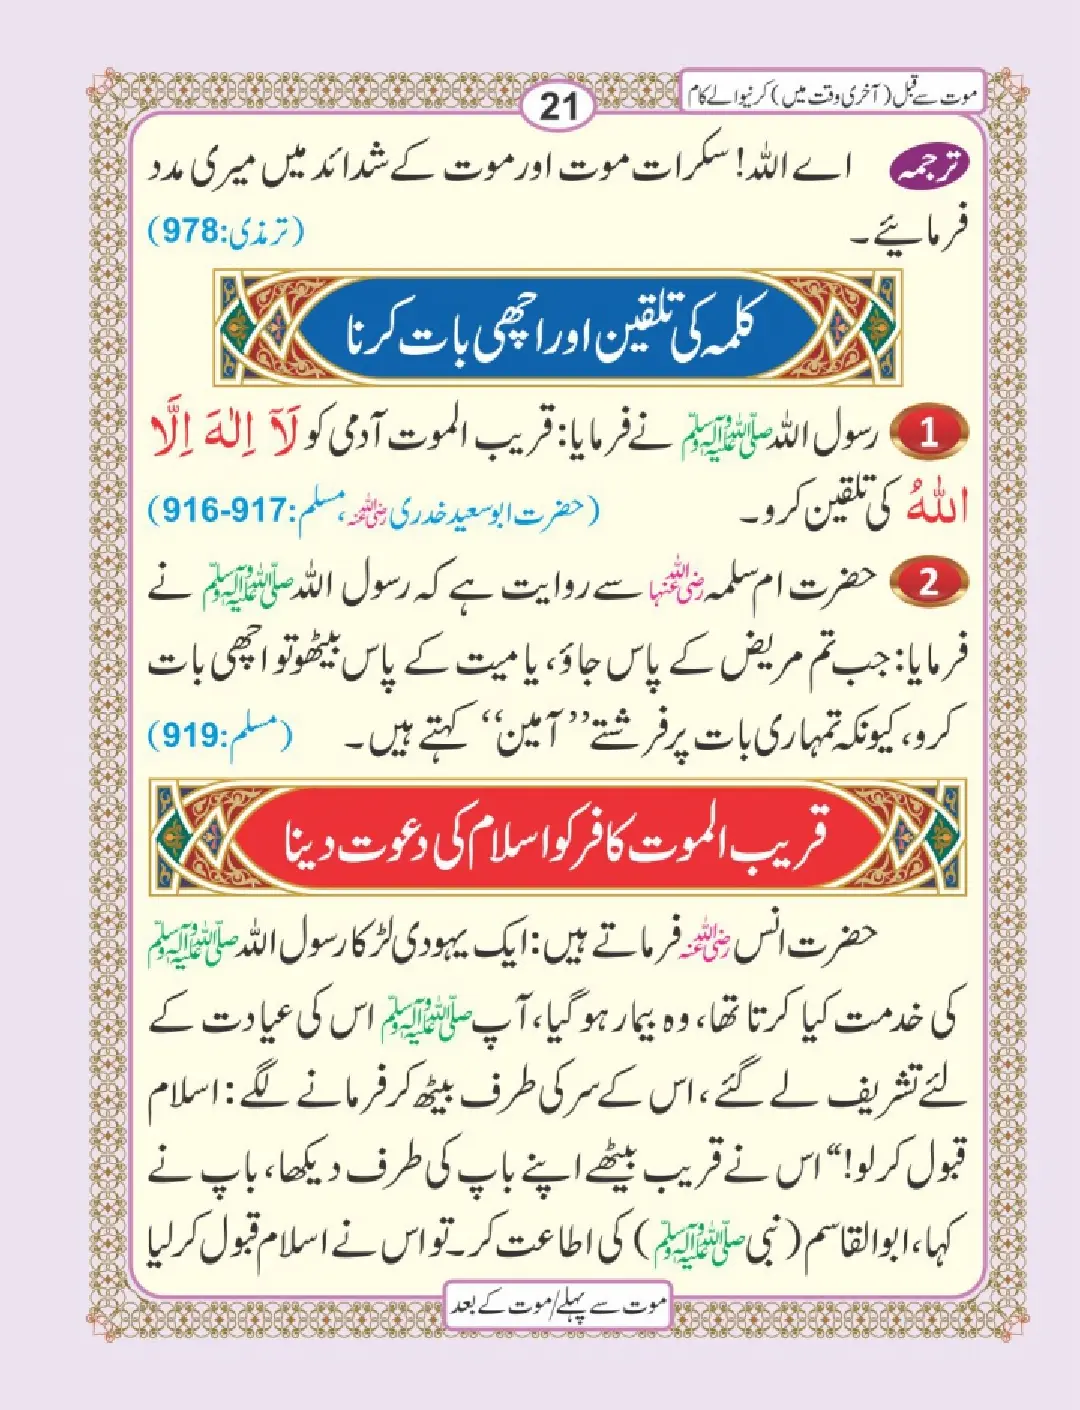 موت سے قبل (آخری وقت میں) کرنیوالے کام
21
ترجمہ اے اللہ! سکرات موت اور موت کے شدائد میں میری مدد
فرمائیے۔ (ترمذی:978)
کلمہ کی تلقین اور اچھی بات کرنا
1 رسول اللہ ﷺ نے فرمایا: قریب الموت آدمی کو لَآ اِلٰهَ اِلَّا
اللّٰهُ کی تلقین کرو۔ (حضرت ابوسعید خدری رضی اللہ عنہ، مسلم:917-916)
2 حضرت ام سلمہ رضی اللہ عنہا سے روایت ہے کہ رسول اللہ ﷺ نے
فرمایا: جب تم مریض کے پاس جاؤ، یا میت کے پاس بیٹھو تو اچھی بات
کرو، کیونکہ تمہاری بات پر فرشتے ’’آمین‘‘ کہتے ہیں۔ (مسلم:919)
قریب الموت کافر کو اسلام کی دعوت دینا
حضرت انس رضی اللہ عنہ فرماتے ہیں: ایک یہودی لڑکا رسول اللہ ﷺ
کی خدمت کیا کرتا تھا، وہ بیمار ہو گیا، آپ ﷺ اس کی عیادت کے
لئے تشریف لے گئے، اس کے سر کی طرف بیٹھ کر فرمانے لگے: اسلام
قبول کر لو!‘‘ اس نے قریب بیٹھے اپنے باپ کی طرف دیکھا، باپ نے
کہا، ابوالقاسم (نبی ﷺ) کی اطاعت کر۔ تو اس نے اسلام قبول کر لیا
موت سے پہلے/موت کے بعد